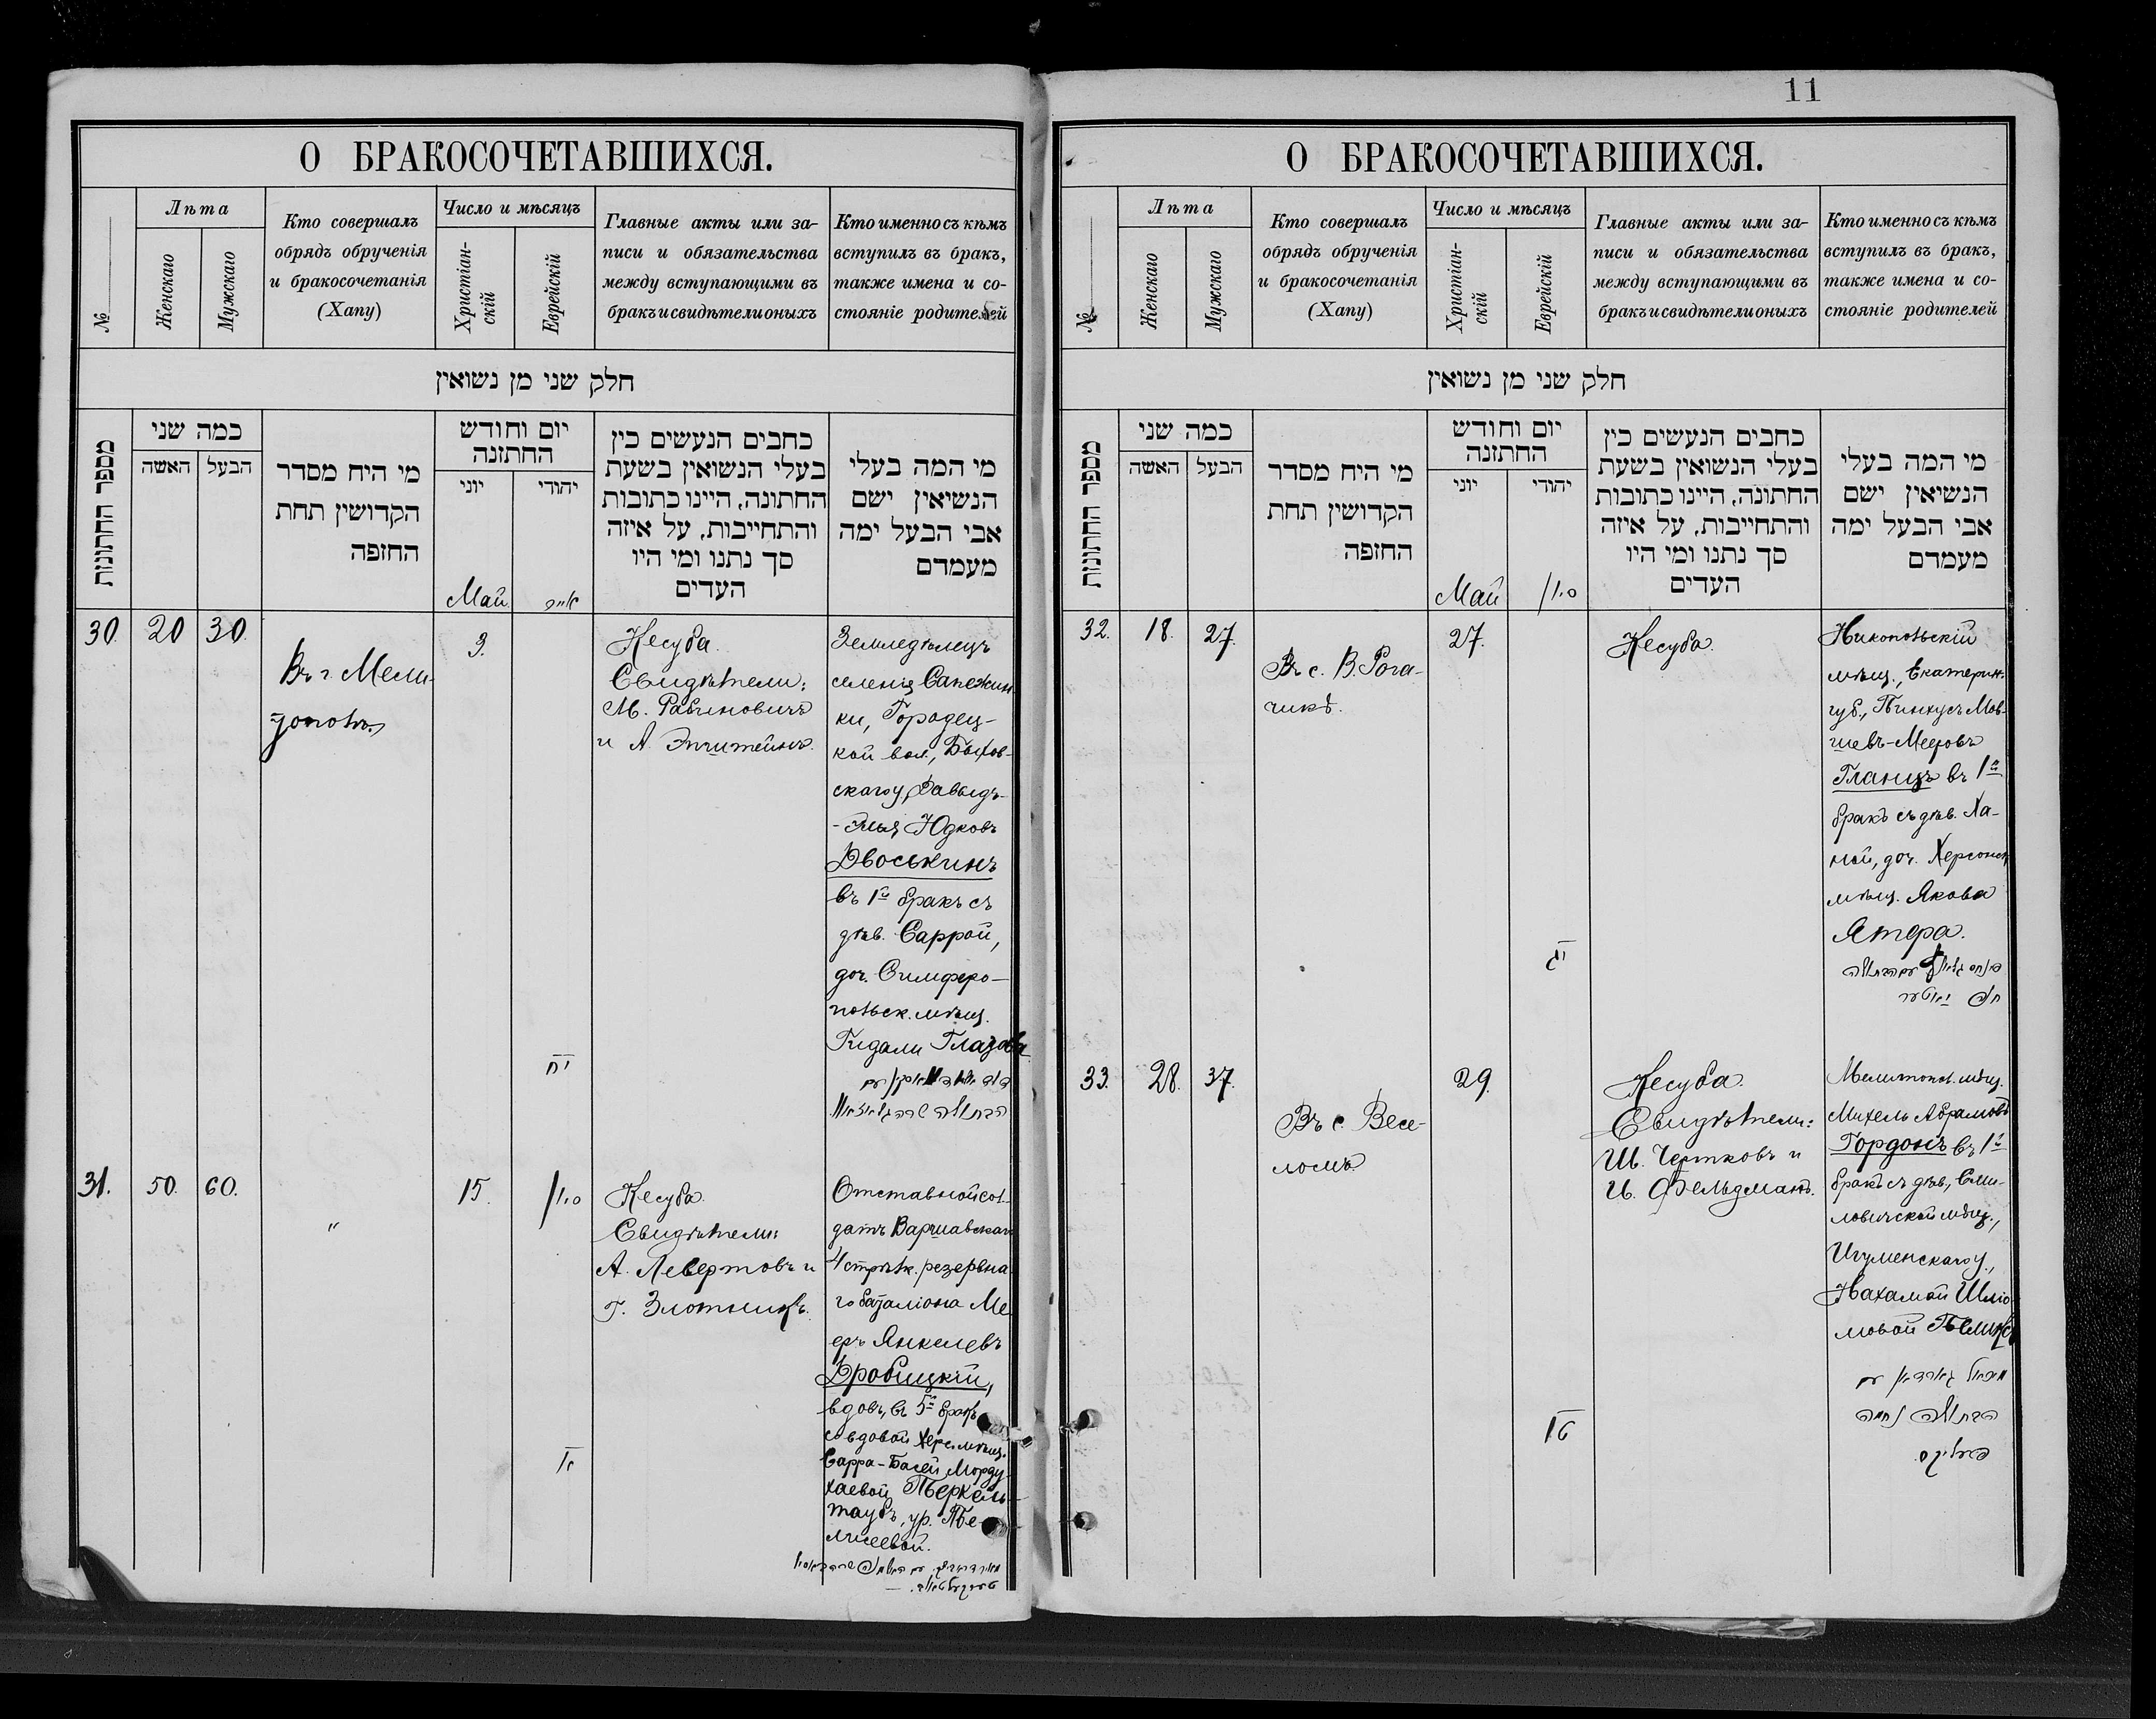 11
О БРАКОСОЧЕТАВШИХСЯ.
№
Лѣта
Женскаго
Мужскаго
Кто совершалъ
обрядъ обрученія
и бракосочетанія
(Хапу)
Число и мѣсяцъ
Христіан-
скій
Еврейскій
Главные акты или за-
писи и обязательства
между вступающими въ
бракъ и свидѣтели оныхъ
Кто именно съ кѣмъ
вступилъ въ бракъ,
также имена и со-
стояніе родителей
חלק שני מן נשואין
מספר החתונות
כמה שני
האשה
הבעל
מי היח מסדר
הקדושין תחת
החזפה
יום וחודש
החתזנה
יוני
יהודי
כחבים הנעשים כין
בעלי הנשואין בשעת
החתונה, היינו כתובות
והתחייבות, על איזה
סך נתנו ומי היו
העדים
מי המה בעלי
הנשיאין ישם
אבי הבעל ימה
מעמדם
Май
אייר
30.
20
30.
Въ г. Мели-
тополѣ
3.
יח
Кесуба.
Свидѣтели:
М. Рабиновичъ
и А. Эпштейнъ.
Земледѣлецъ
селенія Сапежин-
ки, Городец-
кой вол., Быхов-
скаго у, Давыдъ-
-Элья Юдковъ
Двоськинъ
въ 1й бракъ съ
дѣв. Саррой,
доч. Симферо-
польск. мѣщ.
Гидали Глазова
31.
50.
60.
"
15.
סיון
Кесуба.
Свидѣтели:
А. Левертовъ и
Г. Злотникъ.
Отставной сол-
датъ Варшавскаго
4 стрѣлк. резервна-
го баталіона Ме-
еръ Янкелевъ
Дробицкій,
вдовъ, въ 5й бракъ
со вдовой Херс. мѣщ.
Сарра-Басей Морду-
хаевой Перкель-
таубъ, ур. Бе-
лисеевой.
О БРАКОСОЧЕТАВШИХСЯ.
№
Лѣта
Женскаго
Мужскаго
Кто совершалъ
обрядъ обрученія
и бракосочетанія
(Хапу)
Число и мѣсяцъ
Христіан-
скій
Еврейскій
Главные акты или за-
писи и обязательства
между вступающими въ
бракъ и свидѣтели оныхъ
Кто именно съ кѣмъ
вступилъ въ бракъ,
также имена и со-
стояніе родителей
חלק שני מן נשואין
מספר החתונות
כמה שני
האשה
הבעל
מי היח מסדר
הקדושין תחת
החזפה
יום וחודש
החתזנה
יוני
יהודי
כחבים הנעשים כין
בעלי הנשואין בשעת
החתונה, היינו כתובות
והתחייבות, על איזה
סך נתנו ומי היו
העדים
מי המה בעלי
הנשיאין ישם
אבי הבעל ימה
מעמדם
Май
סיון
32.
18.
27.
Въ с. В. Рога-
чикѣ.
27.
יג
Кесуба.
Никопольскій
мѣщ., Екатерин.
губ., Пинхусъ Мов-
шевъ-Мееровъ
Гланцъ въ 1й
бракъ съ дѣв. Ха-
ной, доч. Херсонск.
мѣщ. Якова
Ятера.
33.
28.
37.
Въ с. Весе-
ломъ
29.
טו
Кесуба.
Свидѣтели:
Ш. Чертковъ и
И. Фельдманъ.
Мелитопол. мѣщ.
Михель Абрамовъ
Гордонъ въ 1й
бракъ съ дѣв., Сми-
ловичской мѣщ.,
Игуменскаго у.,
Нахамой Шлiо-
мовой
מיכאל גארדאן עם
הבתולה נחמה